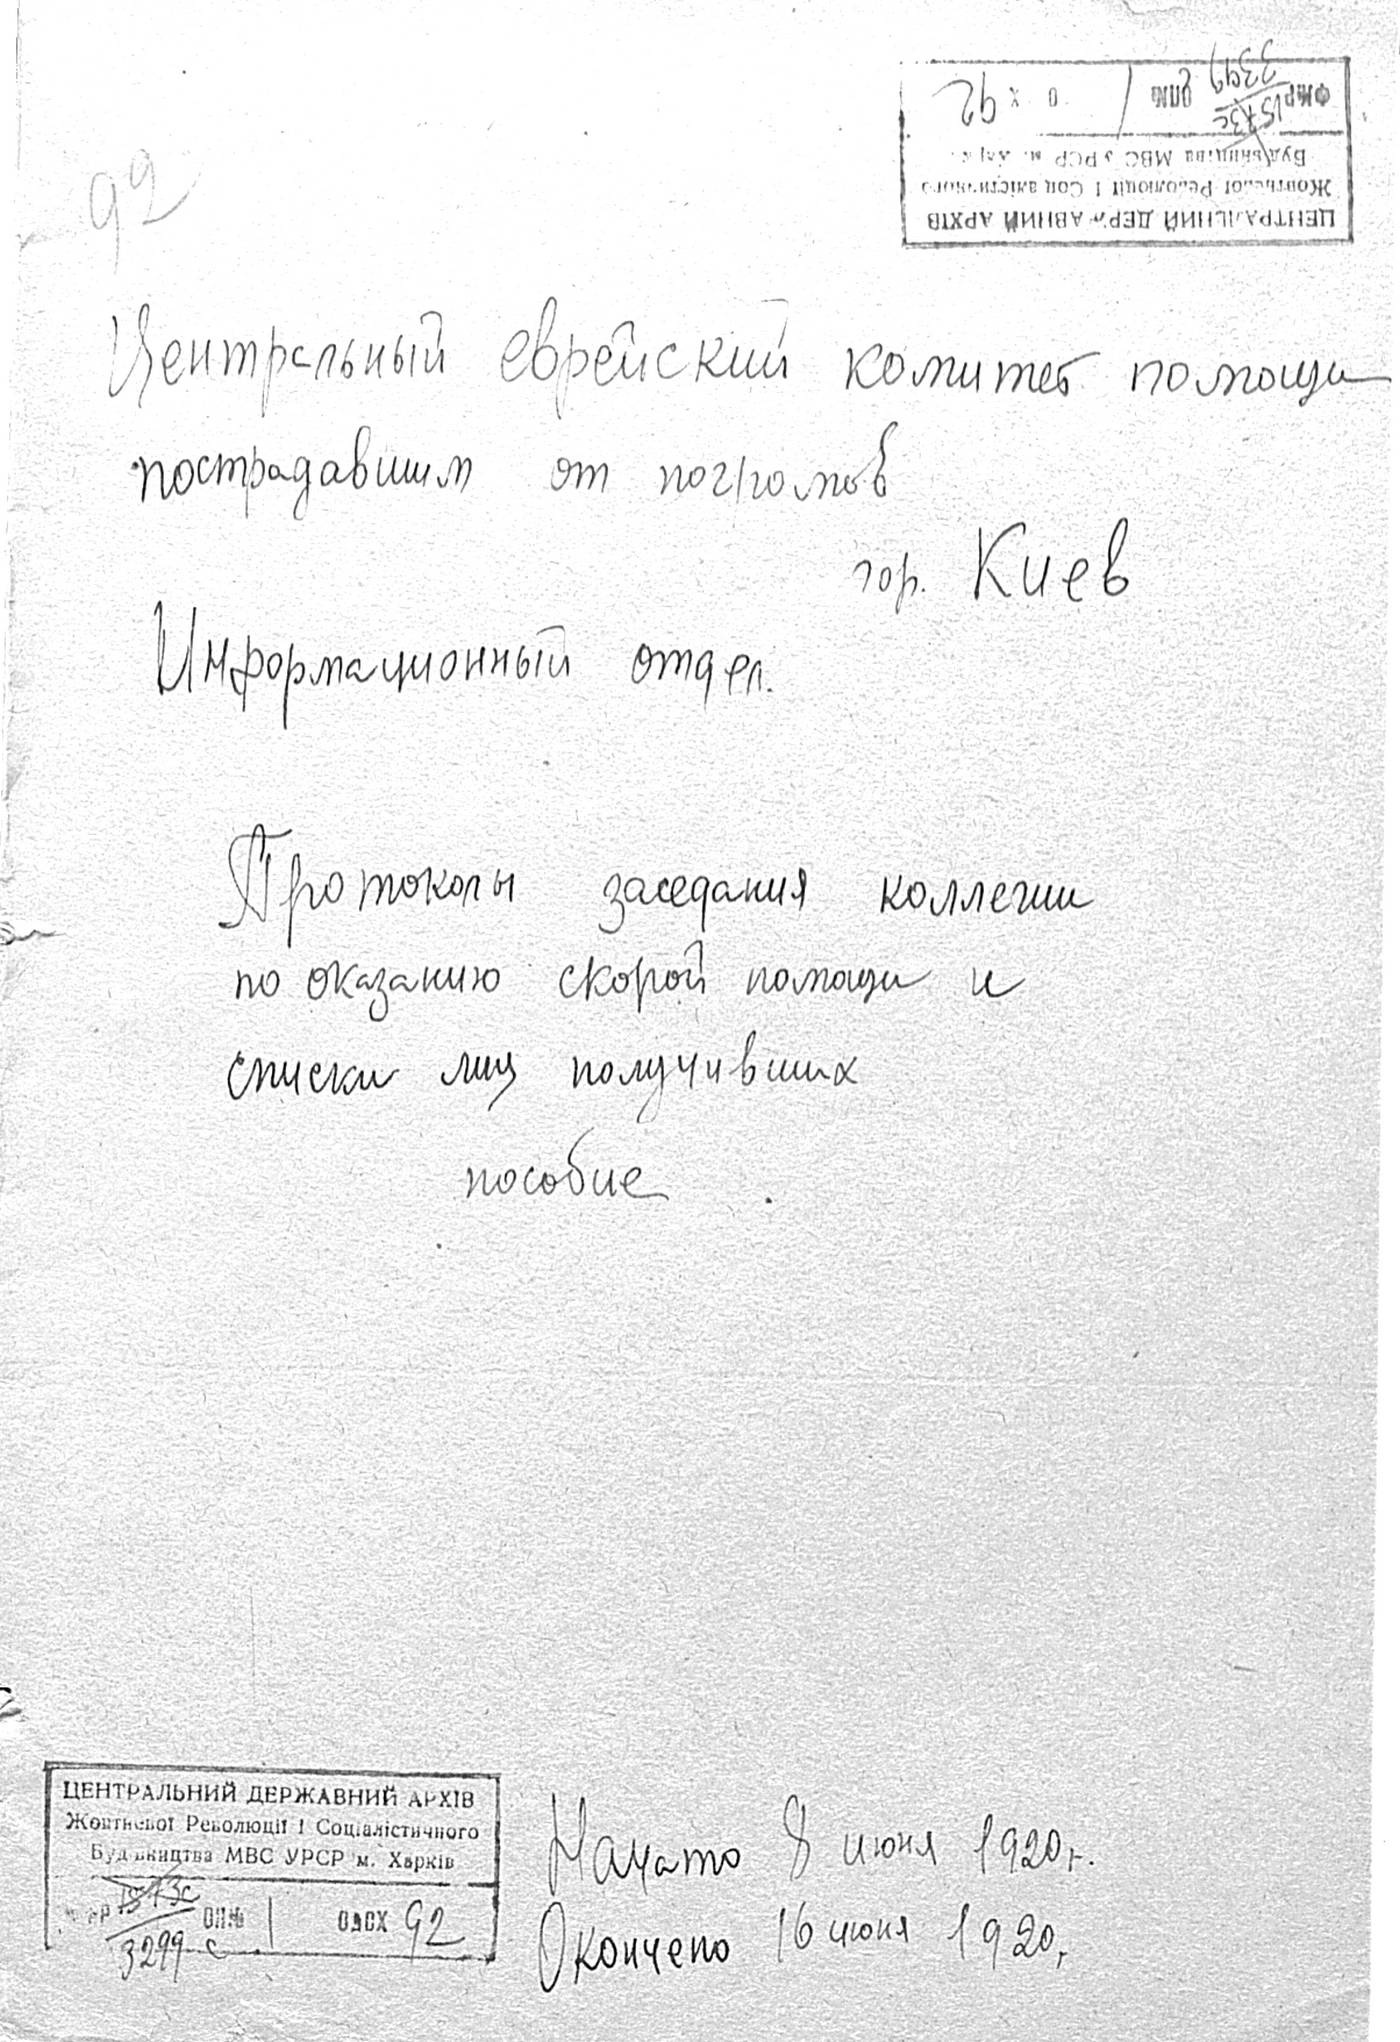 92
ЦЕНТРАЛЬНИЙ ДЕРЖАВНИЙ АРХІВ
Жовтневої Революції і Соціалістичного
Будівництва МВС УРСР м. Харків
ФЖР 1573с ОП№ 1 О х 92
3299
Центральный еврейский комитет помощи
пострадавшим от погромов
гор. Киев
Информационный отдел.
Протоколы заседания коллегии
по оказанию скорой помощи и
списки лиц получивших
пособие
ЦЕНТРАЛЬНИЙ ДЕРЖАВНИЙ АРХІВ
Жовтневої Революції і Соціалістичного
Будівництва МВС УРСР м. Харків
1573с ОП№ 1 ОДСХ 92
3299 с
Начато 8 июня 1920 г.
Окончено 16 июня 1920,